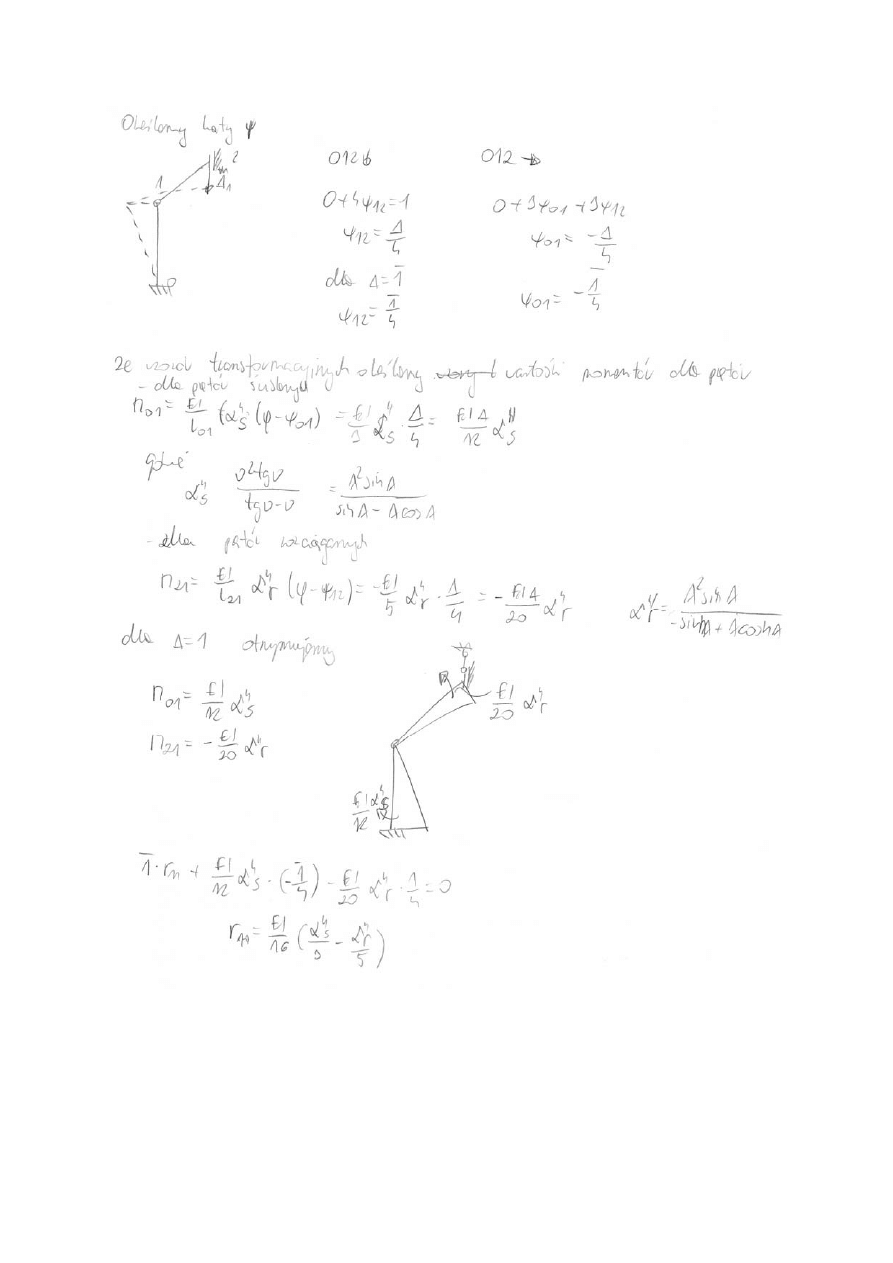 Określamy kąty ψ
012 ↓
012 →
1
2
Δ1
0
0+4ψ12=1
0+3ψ01+3ψ12
ψ12= Δ/4
ψ01= -Δ/4
dla Δ=1̄
ψ12= 1̄/4
ψ01= -1̄/4
Ze wzorów transformacyjnych określamy wartości momentów dla prętów
- dla prętów ściskanych
M01= EI/L01 (αs'' (φ-ψ01) = EI/3 αs'' · Δ/4 = EIΔ/12 αs''
gdzie
αs'' υ²tgυ/tgυ-υ = λ²sinλ/sinλ-λcosλ
- dla prętów rozciąganych
M21= EI/L21 αr'' (φ-ψ12)= -EI/5 αr'' · 1/4 = - EIΔ/20 αr''
αr''= λ²sihλ/-sinhλ+λcoshλ
dla Δ=1 otrzymujemy
M01= EI/12 αs''
M21= -EI/20 αr''
EI/20 αr''
EI/12 αs''
1̄·r11 + EI/12 αs'' · (-1̄/4) - EI/20 αr'' · 1/4 =0
r11= EI/16 (αs''/3 - αr''/5)